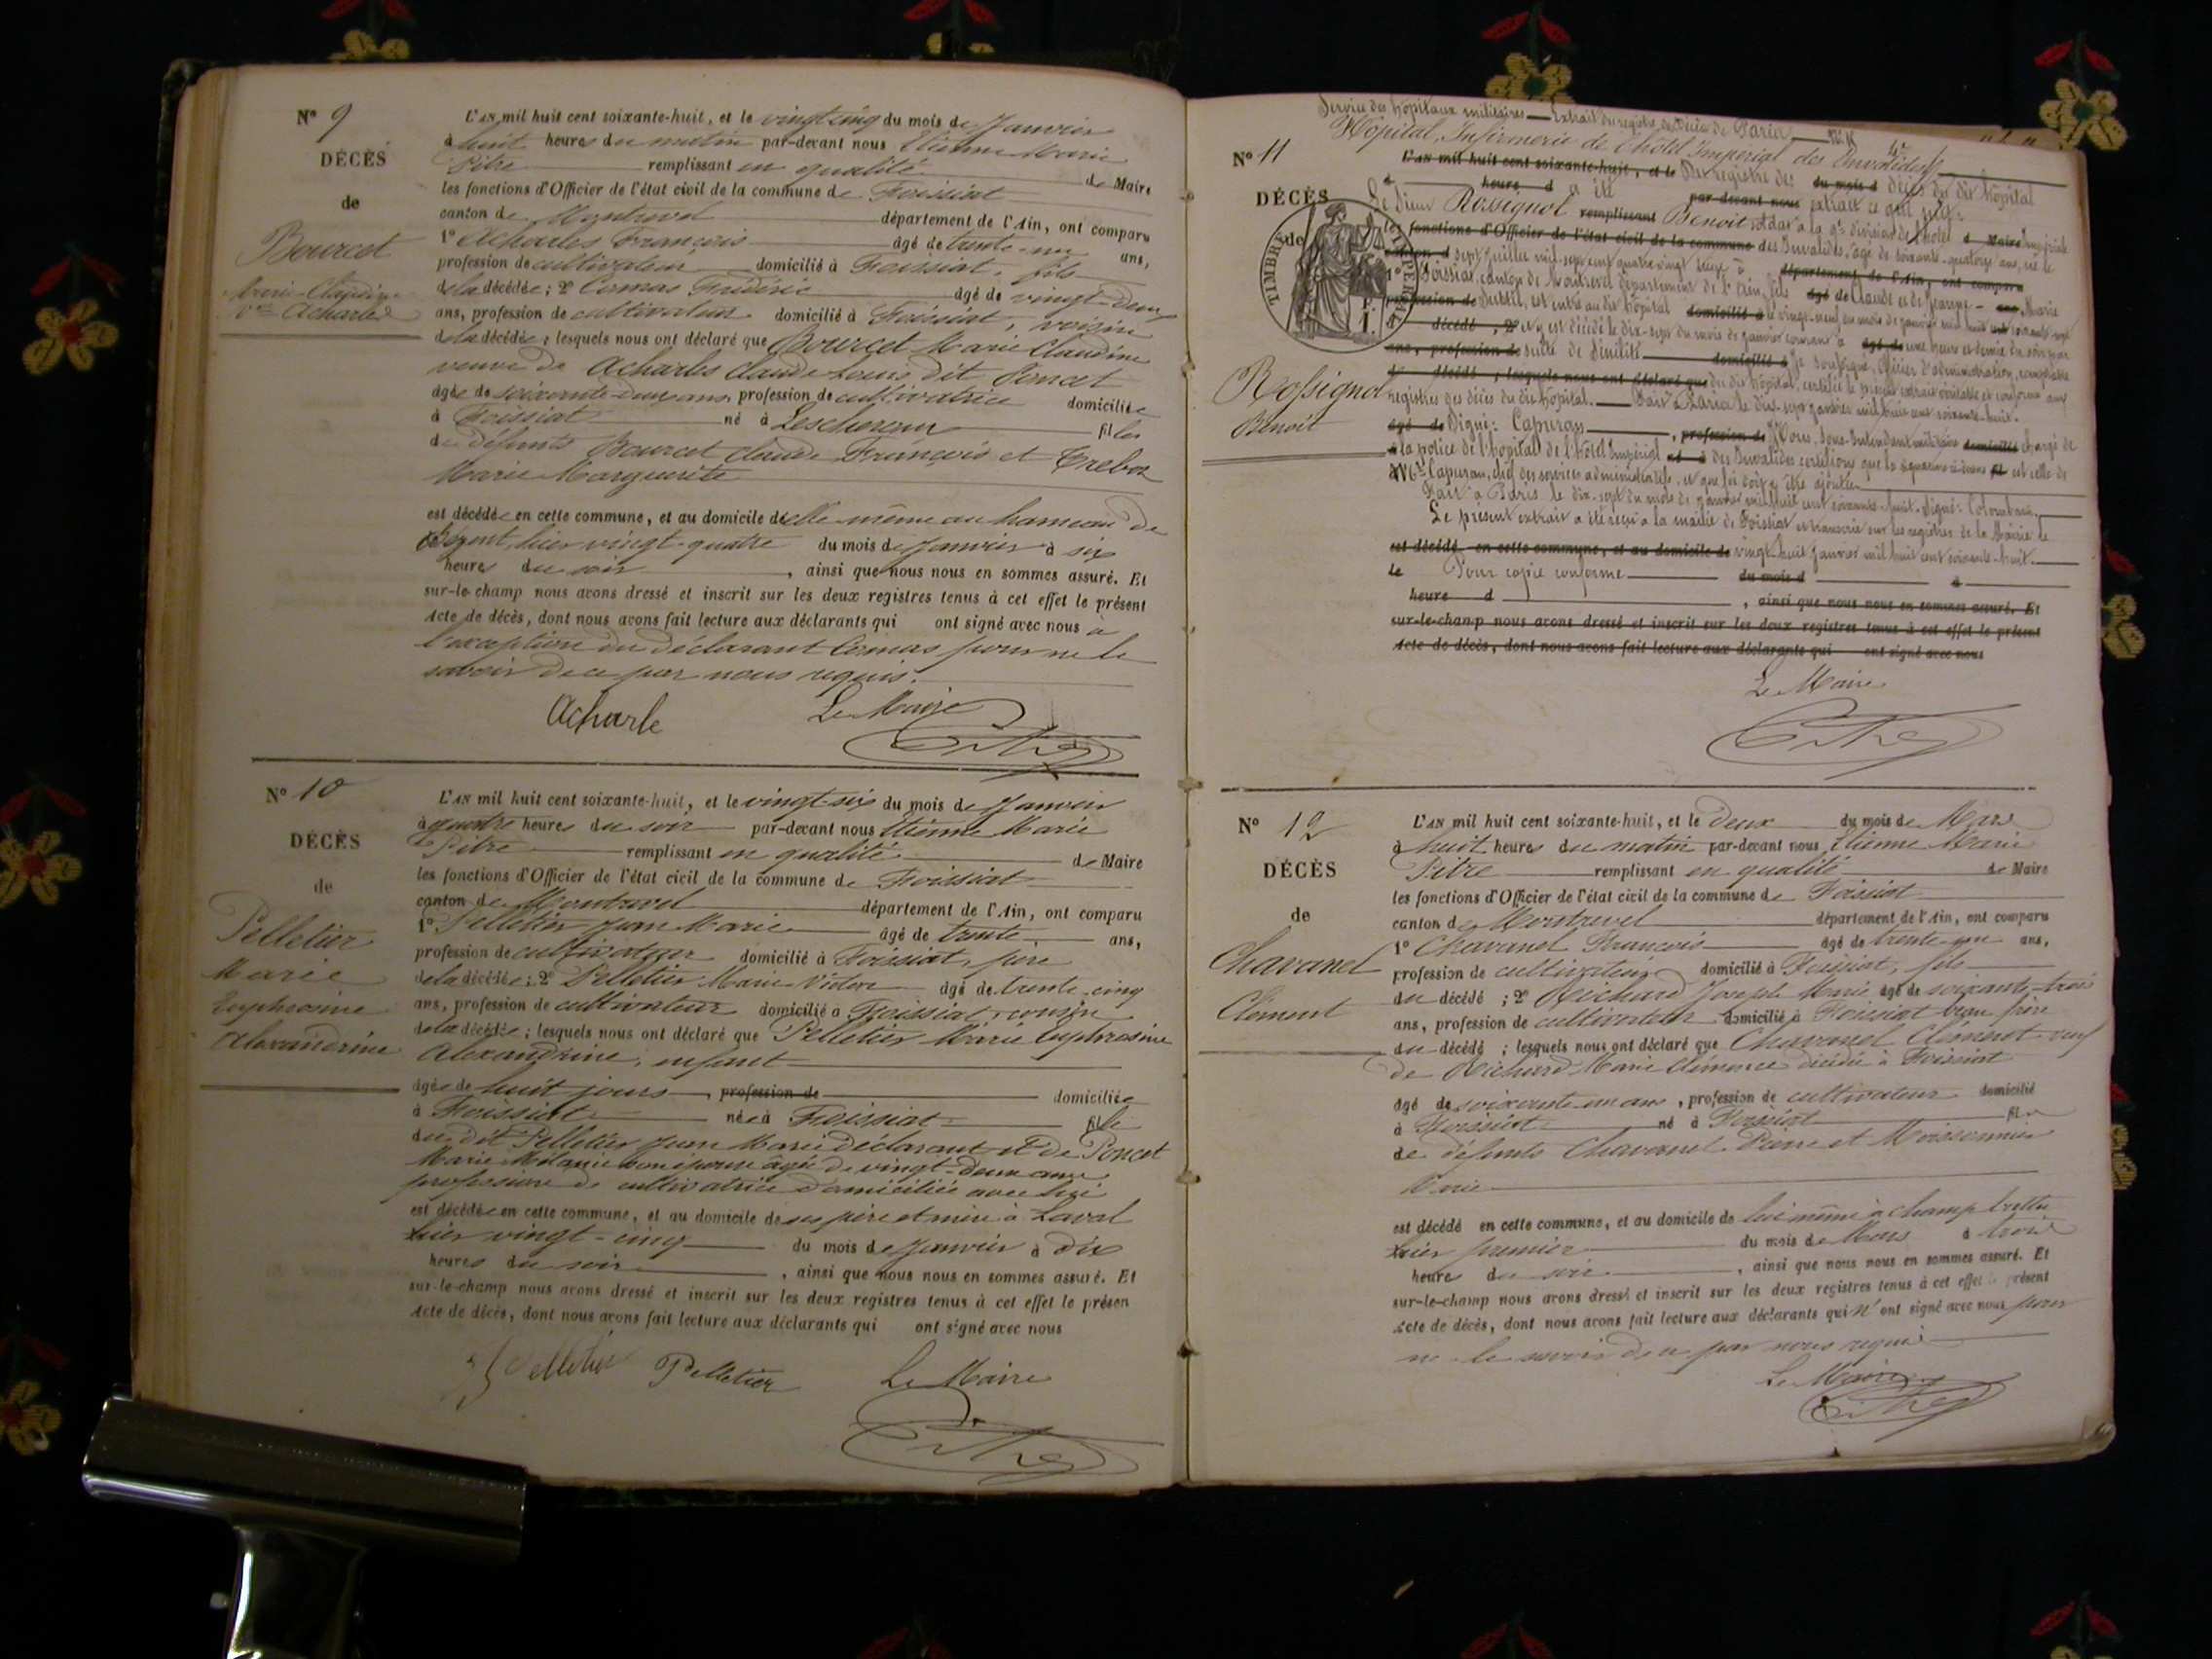 N° 9
DÉCÈS
de
Bourcet
Marie Claudine
Vve Acharles
L'AN mil huit cent soixante-huit, et le vingt cinq du mois de Janvier
à huit heures du matin par-devant nous Etienne Marie
Pitre remplissant en qualité de Maire
les fonctions d'Officier de l'état civil de la commune de Foissiat
canton de Montrevel département de l'Ain, ont comparu
1° Acharles François âgé de trente-un ans,
profession de cultivateur domicilié à Foissiat, fils
de la décédée ; 2° Comas Frédéric âgé de vingt-deux
ans, profession de cultivateur domicilié à Foissiat, voisin
de la décédée ; lesquels nous ont déclaré que Bourcet Marie Claudine
veuve de Acharles Claude Louis dit Poncet
âgée de soixante-deux ans, profession de cultivatrice domiciliée
à Foissiat né à Lescheroux fille
de défunts Bourcet Claude François et
Marie Marguerite
est décédée en cette commune, et au domicile d'elle même au hameau de
hier vingt-quatre du mois de Janvier à six
heures du soir, ainsi que nous nous en sommes assuré. Et
sur-le-champ nous avons dressé et inscrit sur les deux registres tenus à cet effet le présent
Acte de décès, dont nous avons fait lecture aux déclarants qui ont signé avec nous à
l'exception du déclarant Comas pour ne le
savoir de ce par nous requis.
Acharle Le Maire
Pitre
N° 10
DÉCÈS
de
Pelletier
Marie
Euphrosine
Alexandrine
L'AN mil huit cent soixante-huit, et le vingt-six du mois de Janvier
à quatre heures du soir par-devant nous Etienne Marie
Pitre remplissant en qualité de Maire
les fonctions d'Officier de l'état civil de la commune de Foissiat
canton de Montrevel département de l'Ain, ont comparu
1° Pelletier Jean Marie âgé de trente ans,
profession de cultivateur domicilié à Foissiat, père
de la décédée ; 2° Pelletier Marie Victor âgé de trente-cinq
ans, profession de cultivateur domicilié à Foissiat, cousin
de la décédée ; lesquels nous ont déclaré que Pelletier Marie Euphrosine
Alexandrine, enfant
âgée de huit jours, profession de domiciliée
à Foissiat née à Foissiat fille
du dit Pelletier Jean Marie déclarant et de Poncet
Marie Mélanie son épouse âgée de vingt-deux ans
profession de cultivatrice domiciliée avec lui
est décédée en cette commune, et au domicile de ses père et mère à Laval
hier vingt-cinq du mois de Janvier à dix
heures du soir, ainsi que nous nous en sommes assuré. Et
sur-le-champ nous avons dressé et inscrit sur les deux registres tenus à cet effet le présen
Acte de décès, dont nous avons fait lecture aux déclarants qui ont signé avec nous
Pelletier Pelletier Le Maire
Pitre
Service des hôpitaux militaires — Extrait du registre des décès de Paris
Hôpital, Infirmerie de l'hôtel Impérial des Invalides
N° 11
DÉCÈS
de
TIMBRE IMPERIAL
Rossignol
Benoit
L'AN mil huit cent soixante-huit, et le Du registre des du mois d décès du dit hôpital
à heure d a été par-devant nous extrait ce qui suit :
Le Sieur Rossignol remplissant Benoit soldat à la 9e division de l'hôtel d Maire Impérial
les fonctions d'Officier de l'état civil de la commune des Invalides, âgé de soixante-quatorze ans, né le
canton d sept Juillet mil sept cent quatre-vingt treize à département de l'Ain, ont comparu
1° Foissiat, canton de Montrevel département de l'Ain, fils âgé de Claude et de Jeanne- ans, Marie
profession de Subtil, est entré au dit hôpital domicilié à le vingt-neuf du mois de janvier mil huit cent soixante-sept
décédé ; 2° et y est décédé le dix-sept du mois de janvier courant à âgé de une heure et demie du soir par
ans, profession de suite de sénilité domicilié à Je soussigné, Officier d'administration, comptable
d décédé ; lesquels nous ont déclaré que du dit hôpital, certifie le présent extrait véritable et conforme aux
registres des décès du dit hôpital. — Fait à Paris le dix-sept janvier mil huit cent soixante-huit.
âgé de Signé : Capuran, profession de Nous, Sous-Intendant militaire domicilié chargé de
à la police de l'hôpital de l'hôtel Impérial né à des Invalides certifions que la signature ci-dessus fil est celle de
Mr Capuran, chef des services administratifs, et que foi doit y être ajoutée
Fait à Paris le dix-sept du mois de janvier mil huit cent soixante-huit. Signé :
Le présent extrait a été reçu à la mairie de Foissiat et transcrit sur les registres de la Mairie le
est décédé en cette commune, et au domicile de vingt-huit janvier mil huit cent soixante-huit.
le Pour copie conforme du mois d à
heure d , ainsi que nous nous en sommes assuré. Et
sur-le-champ nous avons dressé et inscrit sur les deux registres tenus à cet effet le présent
Acte de décès, dont nous avons fait lecture aux déclarants qui ont signé avec nous
Le Maire
Pitre
N° 12
DÉCÈS
de
Chavanel
Clément
L'AN mil huit cent soixante-huit, et le deux du mois de Mars
à huit heures du matin par-devant nous Etienne Marie
Pitre remplissant en qualité de Maire
les fonctions d'Officier de l'état civil de la commune de Foissiat
canton de Montrevel département de l'Ain, ont comparu
1° Chavanel François âgé de trente-un ans,
profession de cultivateur domicilié à Foissiat, fils
du décédé ; 2° Richard Joseph Marie âgé de soixante-trois
ans, profession de cultivateur domicilié à Foissiat beau frère
du décédé ; lesquels nous ont déclaré que Chavanel Clément veuf
de Richard Marie Clémence décédée à Foissiat
âgé de soixante-un ans, profession de cultivateur domicilié
à Foissiat né à Foissiat fils
de défunts Chavanel Pierre et Moissonnier
Marie
est décédé en cette commune, et au domicile de lui même à champ
hier premier du mois de Mars à trois
heures du soir, ainsi que nous nous en sommes assuré. Et
sur-le-champ nous avons dressé et inscrit sur les deux registres tenus à cet effet le présent
Acte de décès, dont nous avons fait lecture aux déclarants qui n'ont signé avec nous pour
ne le savoir de ce par nous requis
Le Maire
Pitre